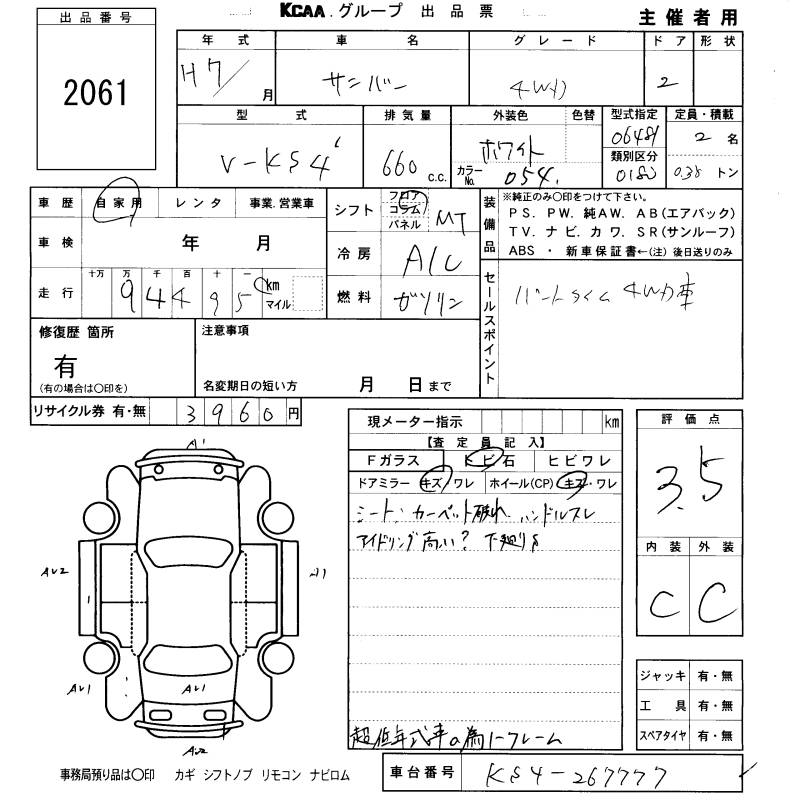 KCAA.グループ 出品票
主催者用
出品番号
2061
年式 車名 グレード ドア 形状
H7/ 月 サンバー 4WD 2
型式 排気量 外装色 色替 型式指定 定員・積載
V-KS4 660 c.c. ホワイト 06481 2 名
カラーNo. 054 類別区分 0180 0.35 トン
車歴 自家用 レンタ 事業.営業車
シフト フロア コラム パネル MT
装備品 ※純正のみ〇印をつけて下さい。
PS. PW. 純AW. AB(エアバック)
TV. ナビ. カワ. SR(サンルーフ)
ABS ・ 新車保証書←(注) 後日送りのみ
車検 年 月
冷房 A/C
走行 十万 万 千 百 十 一
94495 km マイル
燃料 ガソリン
セールスポイント
パートタイム 4WD車
修復歴 箇所
有
(有の場合は〇印を)
注意事項
名変期日の短い方 月 日まで
リサイクル券 有・無 3960円
現メーター指示 km
【査定員記入】
Fガラス トビ石 ヒビワレ
ドアミラー キズ/ワレ ホイール(CP) キズ・ワレ
シート、カーペット破れ ハンドルスレ
アイドリング高い? 下廻りS
超低年式車の為ノーフレーム
評価点
3.5
内装 外装
C C
ジャッキ 有・無
工具 有・無
スペアタイヤ 有・無
A1
AU2
AU1 AU1
AU2
事務局預り品は〇印 カギ シフトノブ リモコン ナビロム
車台番号 KS4-267777